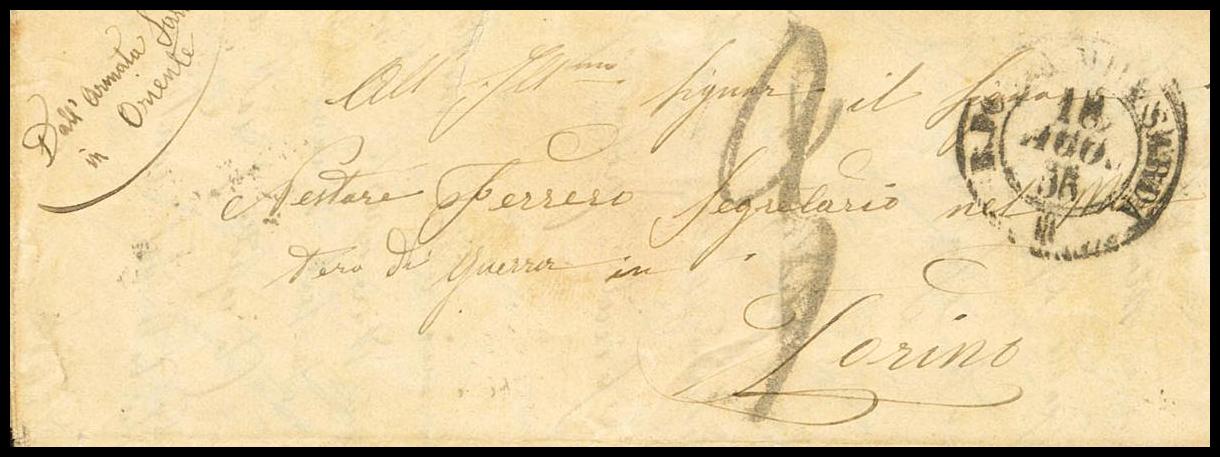 Dall' Armata Sar
in Oriente
All' Ill.mo Signor il Signor
Nestore Ferrero Segretario nel Mi
tero di Guerra in
Torino
18
AGO.